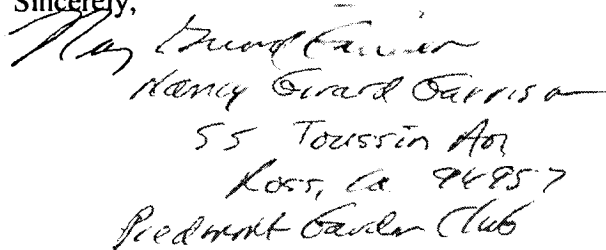 Sincerely,
Nancy Girard Garrison
Nancy Girard Garrison
55 Toussin Av
Ross, Ca 94957
Piedmont Garden Club